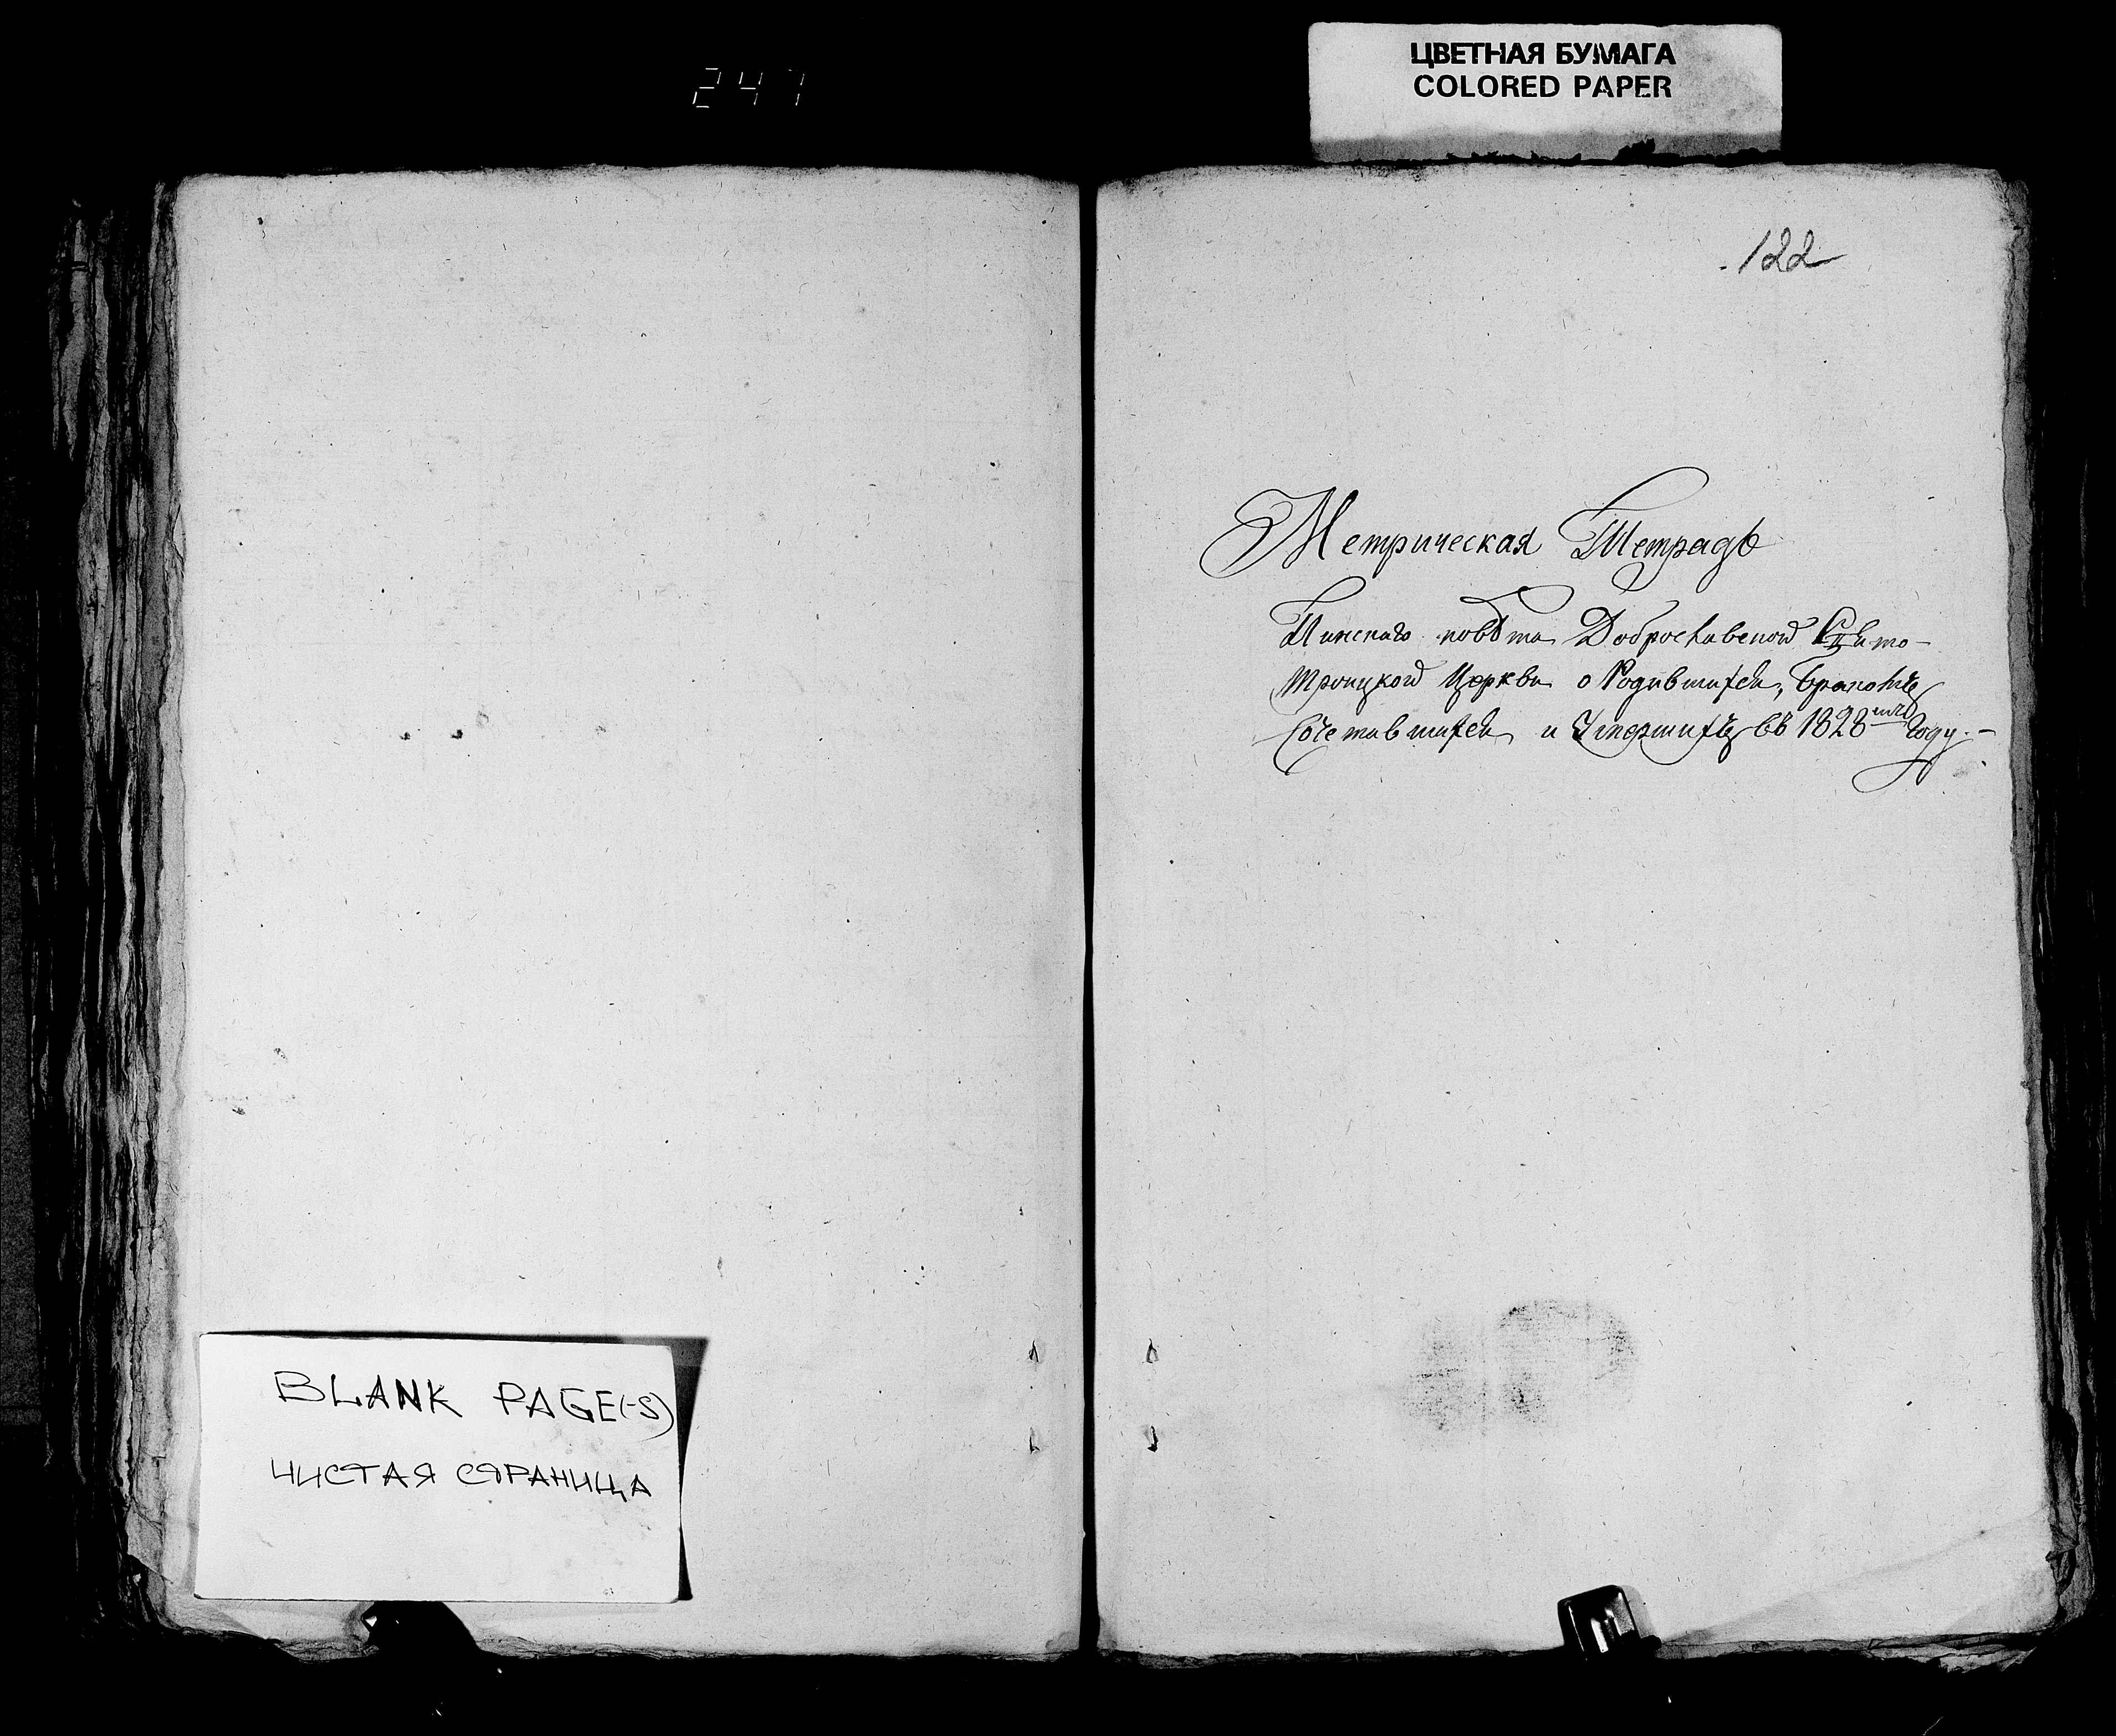 247
ЦВЕТНАЯ БУМАГА
COLORED PAPER
122
Метрическая Тетрадь
Пинскаго повѣта Доброславской Свято-
троицкой Церкви о Родившихся, Бракомъ
Сочетавшихся и Умершихъ въ 1828 году.-
BLANK PAGE(-S)
ЧИСТАЯ СТРАНИЦА